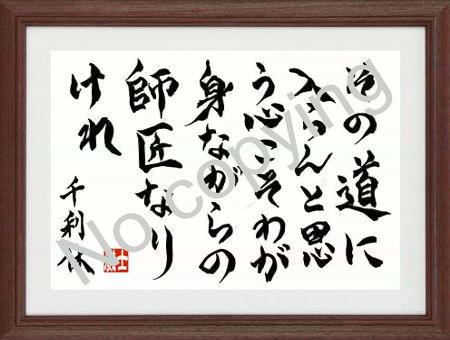 その道に
入らんと思
う心こそわが
身ながらの
師匠なり
けれ
千利休
No copying